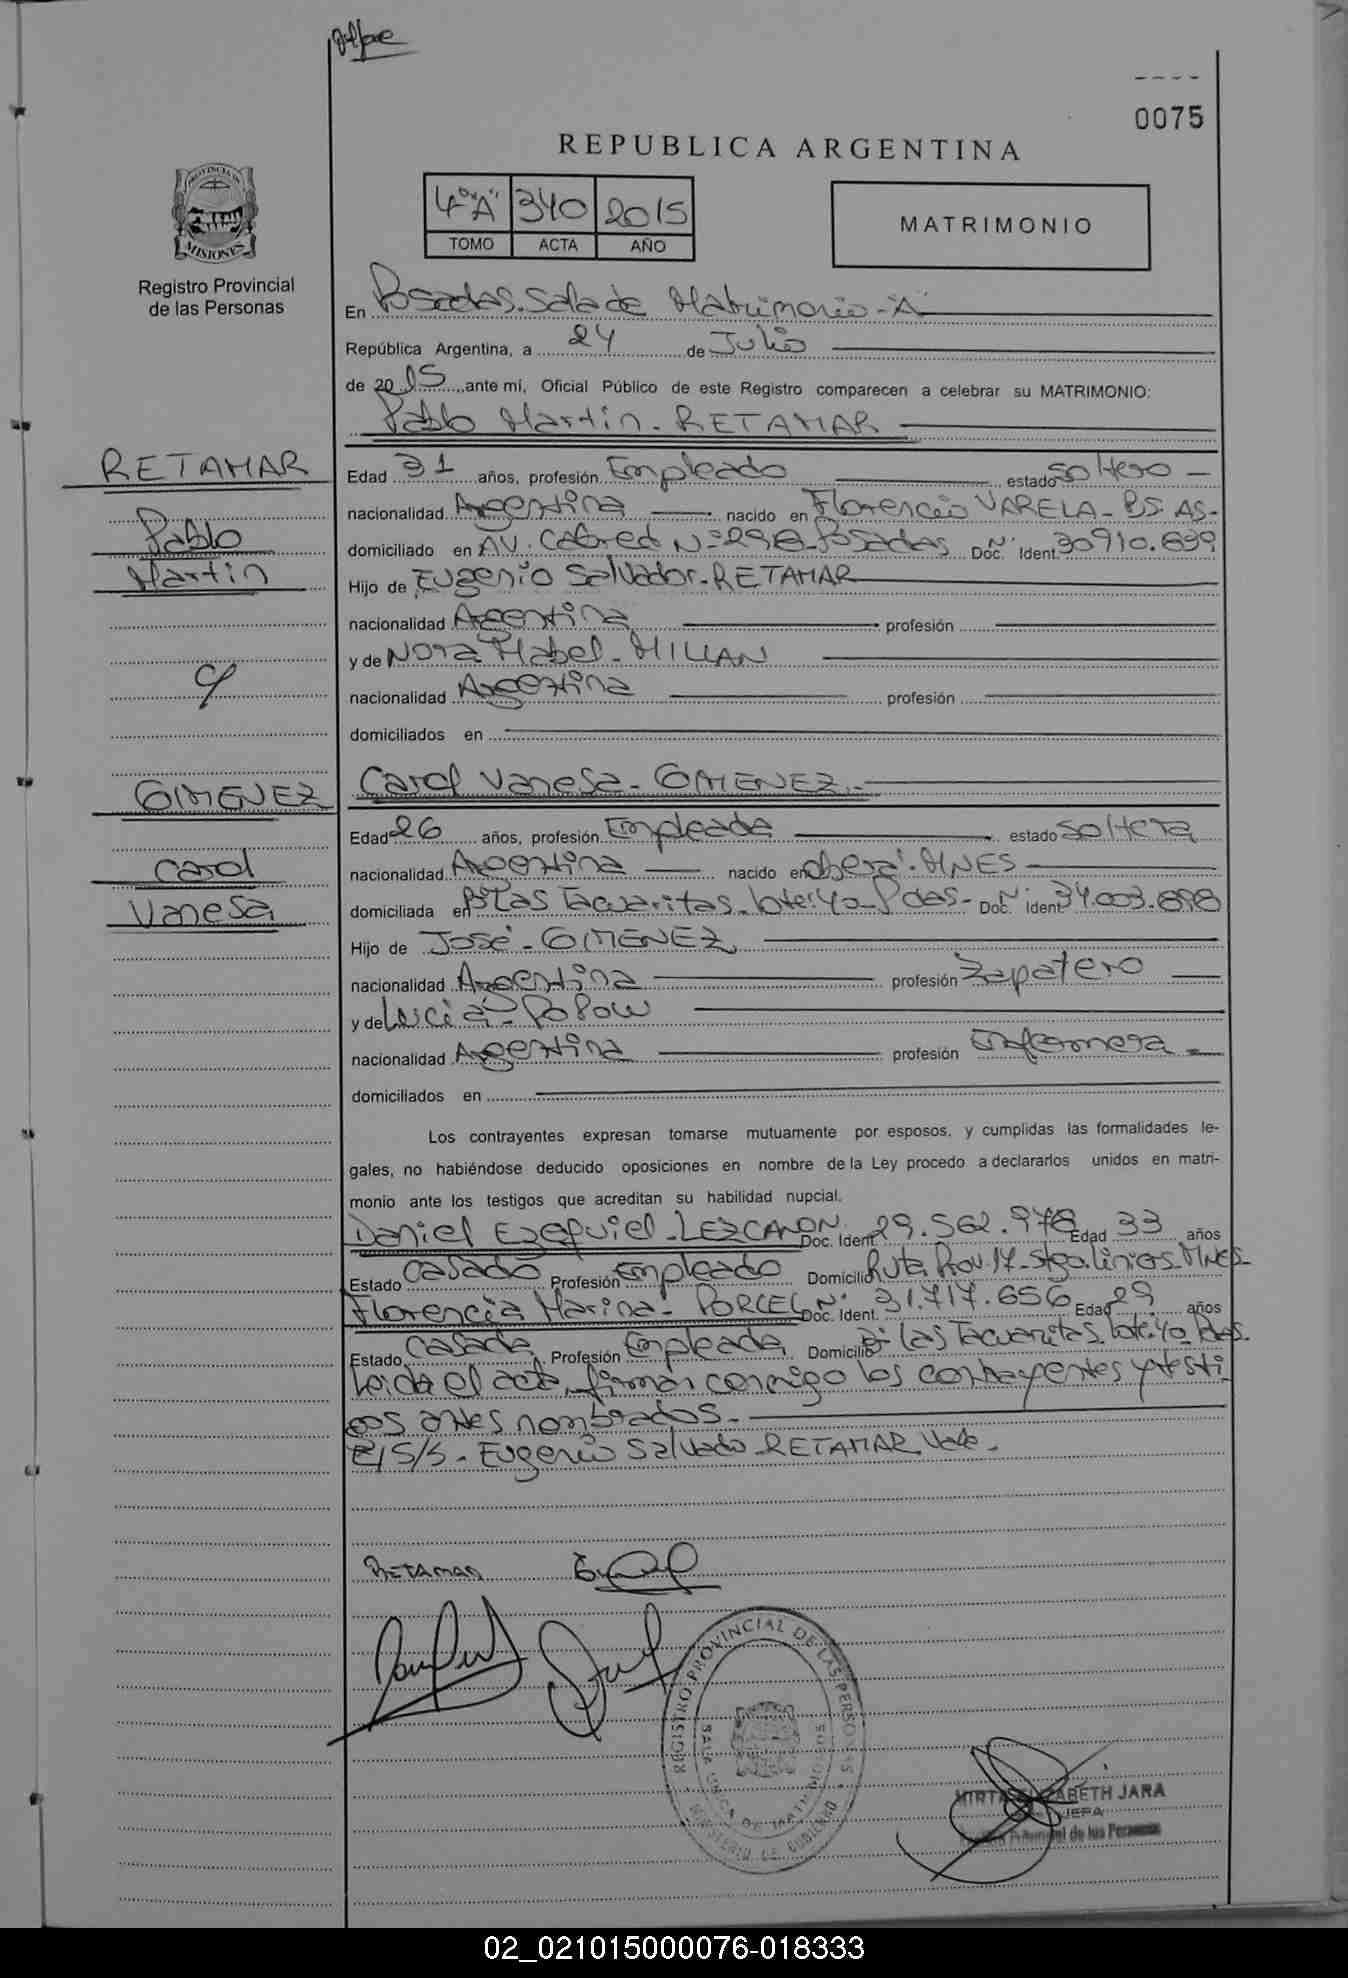 0075
REPUBLICA ARGENTINA
4º"A" 340 2015
TOMO ACTA AÑO
MATRIMONIO
PROVINCIA DE
MISIONES
Registro Provincial
de las Personas
En Posadas. Sala de Matrimonio-"A"
República Argentina, a 24 de Julio
de 2015, ante mí, Oficial Público de este Registro comparecen a celebrar su MATRIMONIO:
Pablo Martín. RETAMAR
RETAMAR
Pablo
Martin
Edad 31 años, profesión Empleado estado soltero -
nacionalidad Argentina nacido en Florencio VARELA - BS. AS-
domiciliado en AV. Cabred Nº 2918-Posadas Doc. Nº Ident. 30910.699
Hijo de Eugenio Salvador-RETAMAR
nacionalidad Argentina profesión
y de Nora Mabel - MILLAN
nacionalidad Argentina profesión
domiciliados en
c/
GIMENEZ
Carol
Vanesa
Carol Vanesa - GIMENEZ.-
Edad 26 años, profesión Empleada estado soltera
nacionalidad Argentina nacido en Oberá-MNES
domiciliada en Bº Las Tacuaritas - lote: 40 - Pdas- Doc. Nº Ident 34.003.898
Hijo de José - GIMENEZ
nacionalidad Argentina profesión Zapatero
y de Lucia - POPOW
nacionalidad Argentina profesión Enfermera
domiciliados en
Los contrayentes expresan tomarse mutuamente por esposos, y cumplidas las formalidades le-
gales, no habiéndose deducido oposiciones en nombre de la Ley procedo a declararlos unidos en matri-
monio ante los testigos que acreditan su habilidad nupcial.
Daniel Ezequiel - LEZCANO Nº Doc. Ident. 29.562.978 Edad 33 años
Estado Casado Profesión Empleado Domicilio Ruta Prov. 17 - Stgo. Liniers. MNES-
Florencia Marina - PORCEL Nº Doc. Ident. 31.717.656 Edad 29 años
Estado Casada Profesión Empleada Domicilio Bº las Tacuaritas lote: 40 Pdas.
Leída el acta, firman conmigo los contrayentes y testi
gos antes nombrados.-
E/S/S - Eugenio Salvado RETAMAR Vale.
RETAMAR
REGISTRO PROVINCIAL DE LAS PERSONAS
SALA UNICA DE MATRIMONIOS
MINISTERIO DE GOBIERNO
MIRTA ELIZABETH JARA
JEFA
Provincial de las Personas
02_021015000076-018333